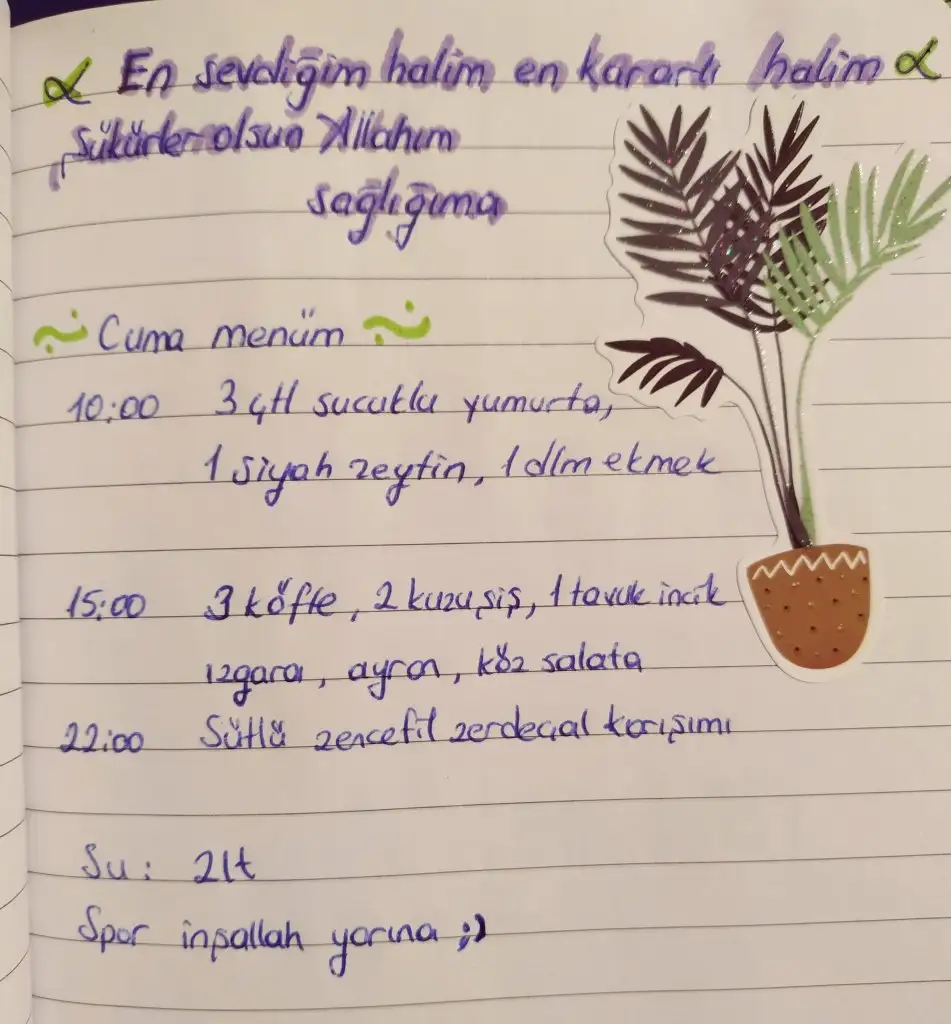 En sevdiğim halim en kararlı halim
Şükürler olsun Allahım
sağlığıma
Cuma menüm
10:00 3 çtl sucuklu yumurta,
1 siyah zeytin, 1 dlm ekmek
15:00 3 köfte, 2 kuzu şiş, 1 tavuk incik
ızgara, ayran, köz salata
22:00 Sütlü zencefil zerdeçal karışımı
Su: 2lt
Spor inşallah yarına ;)